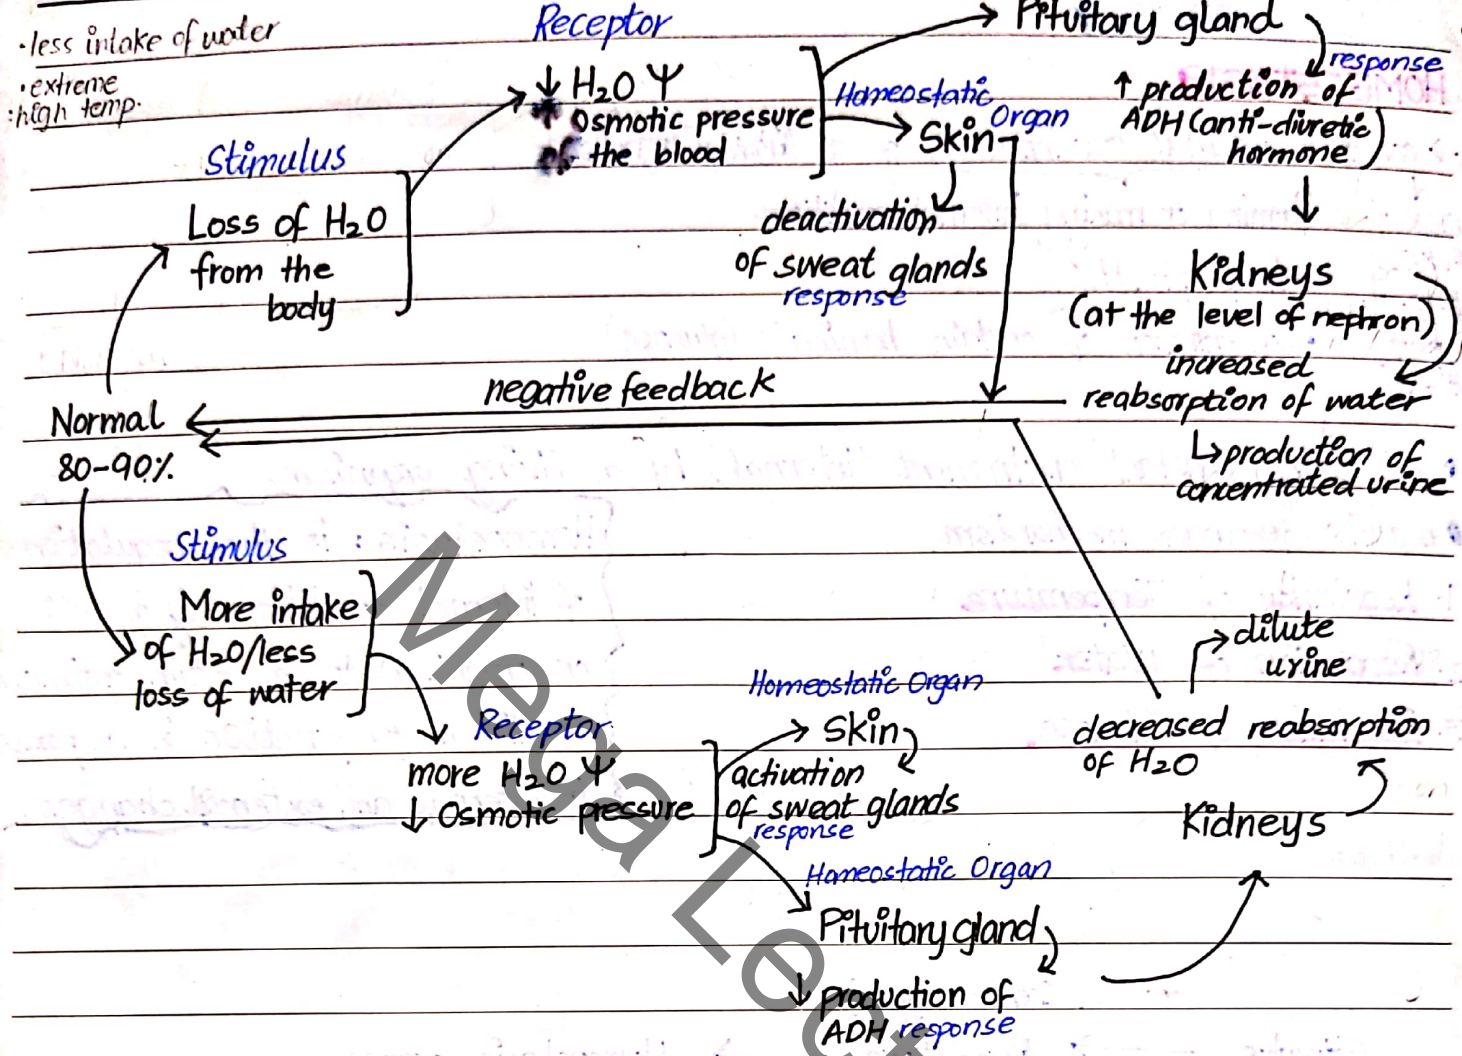 ·less intake of water
·extreme
:high temp.
Stimulus
Loss of H2O
from the
body
Receptor
↓ H2O Ψ
Osmotic pressure
of the blood
Pituitary gland
response
↑ production of
ADH (anti-diuretic
hormone)
Homeostatic
Organ
Skin
deactivation
of sweat glands
response
Kidneys
(at the level of nephron)
increased
reabsorption of water
↳production of
concentrated urine
negative feedback
Normal
80-90%
Stimulus
More intake
of H2O/less
loss of water
Receptor
more H2O Ψ
↓ Osmotic pressure
Homeostatic Organ
Skin
activation
of sweat glands
response
Homeostatic Organ
Pituitary gland
↓ production of
ADH response
Kidneys
decreased reabsorption
of H2O
dilute
urine
Mega Lect